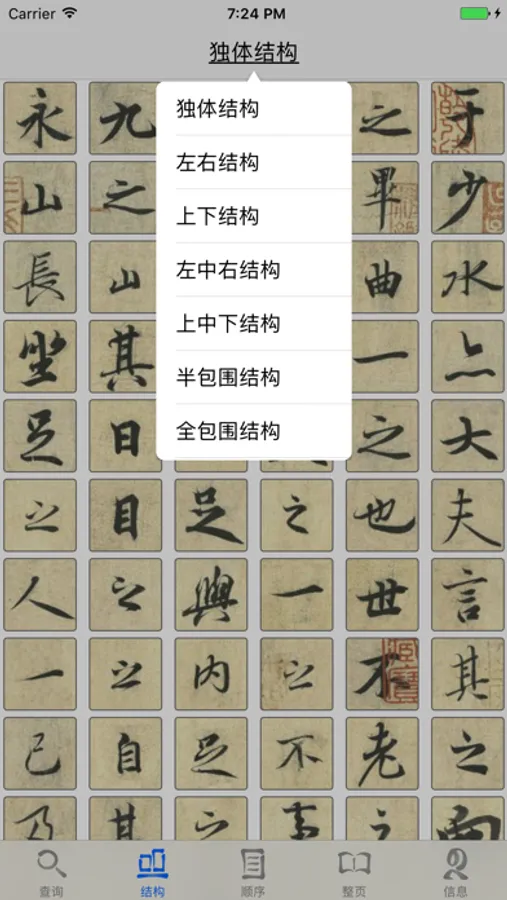 Carrier 7:24 PM
独体结构
独体结构
左右结构
上下结构
左中右结构
上中下结构
半包围结构
全包围结构
永 九 之 于
山 之 畢 少
長 山 曲 水
坐 其 一 亦
足 日 之 大
之 目 足 之 也 夫
人 之 與 一 世 言
一 之 内 之 不 其
己 自 足 不 老 之
乃 其 之 事 之 而
查询 结构 顺序 整页 信息